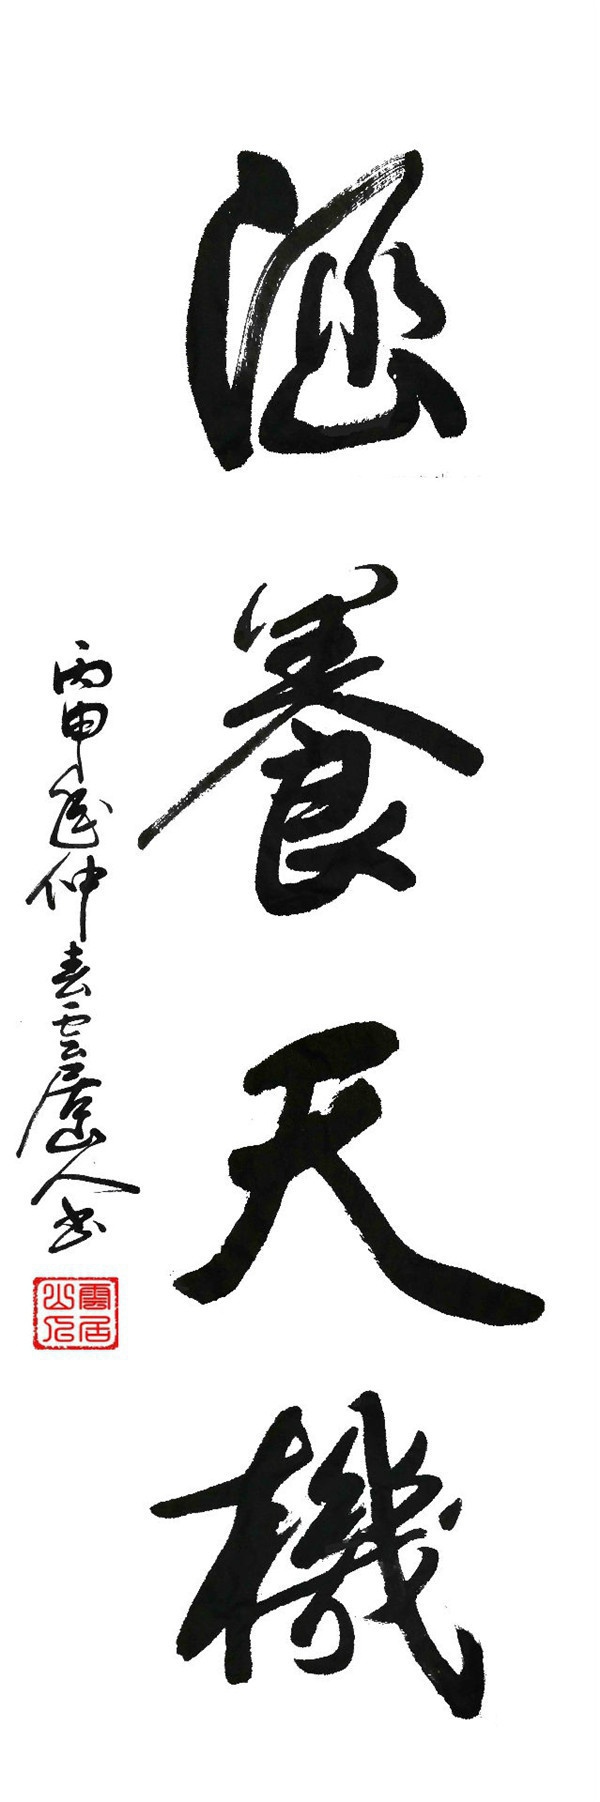 涵養天機
丙申年仲春雲居山人書
雲居山人